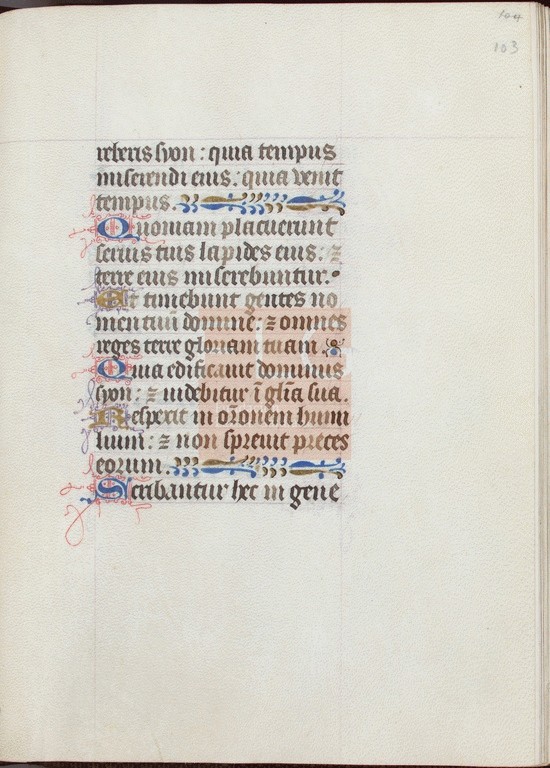 104
103
reberis syon: quia tempus
miserendi eius: quia venit
tempus.
Quoniam placuerunt
seruis tuis lapides eius: ⁊
terre eius miserebuntur.
Et timebunt gentes no
men tuū domine: ⁊ omnes
reges terre gloriam tuam.
Quia edificauit dominus
syon: ⁊ uidebitur ī glīa sua.
Respexit in orōnem humi
lium: ⁊ non spreuit preces
eorum.
Scribantur hec in gene